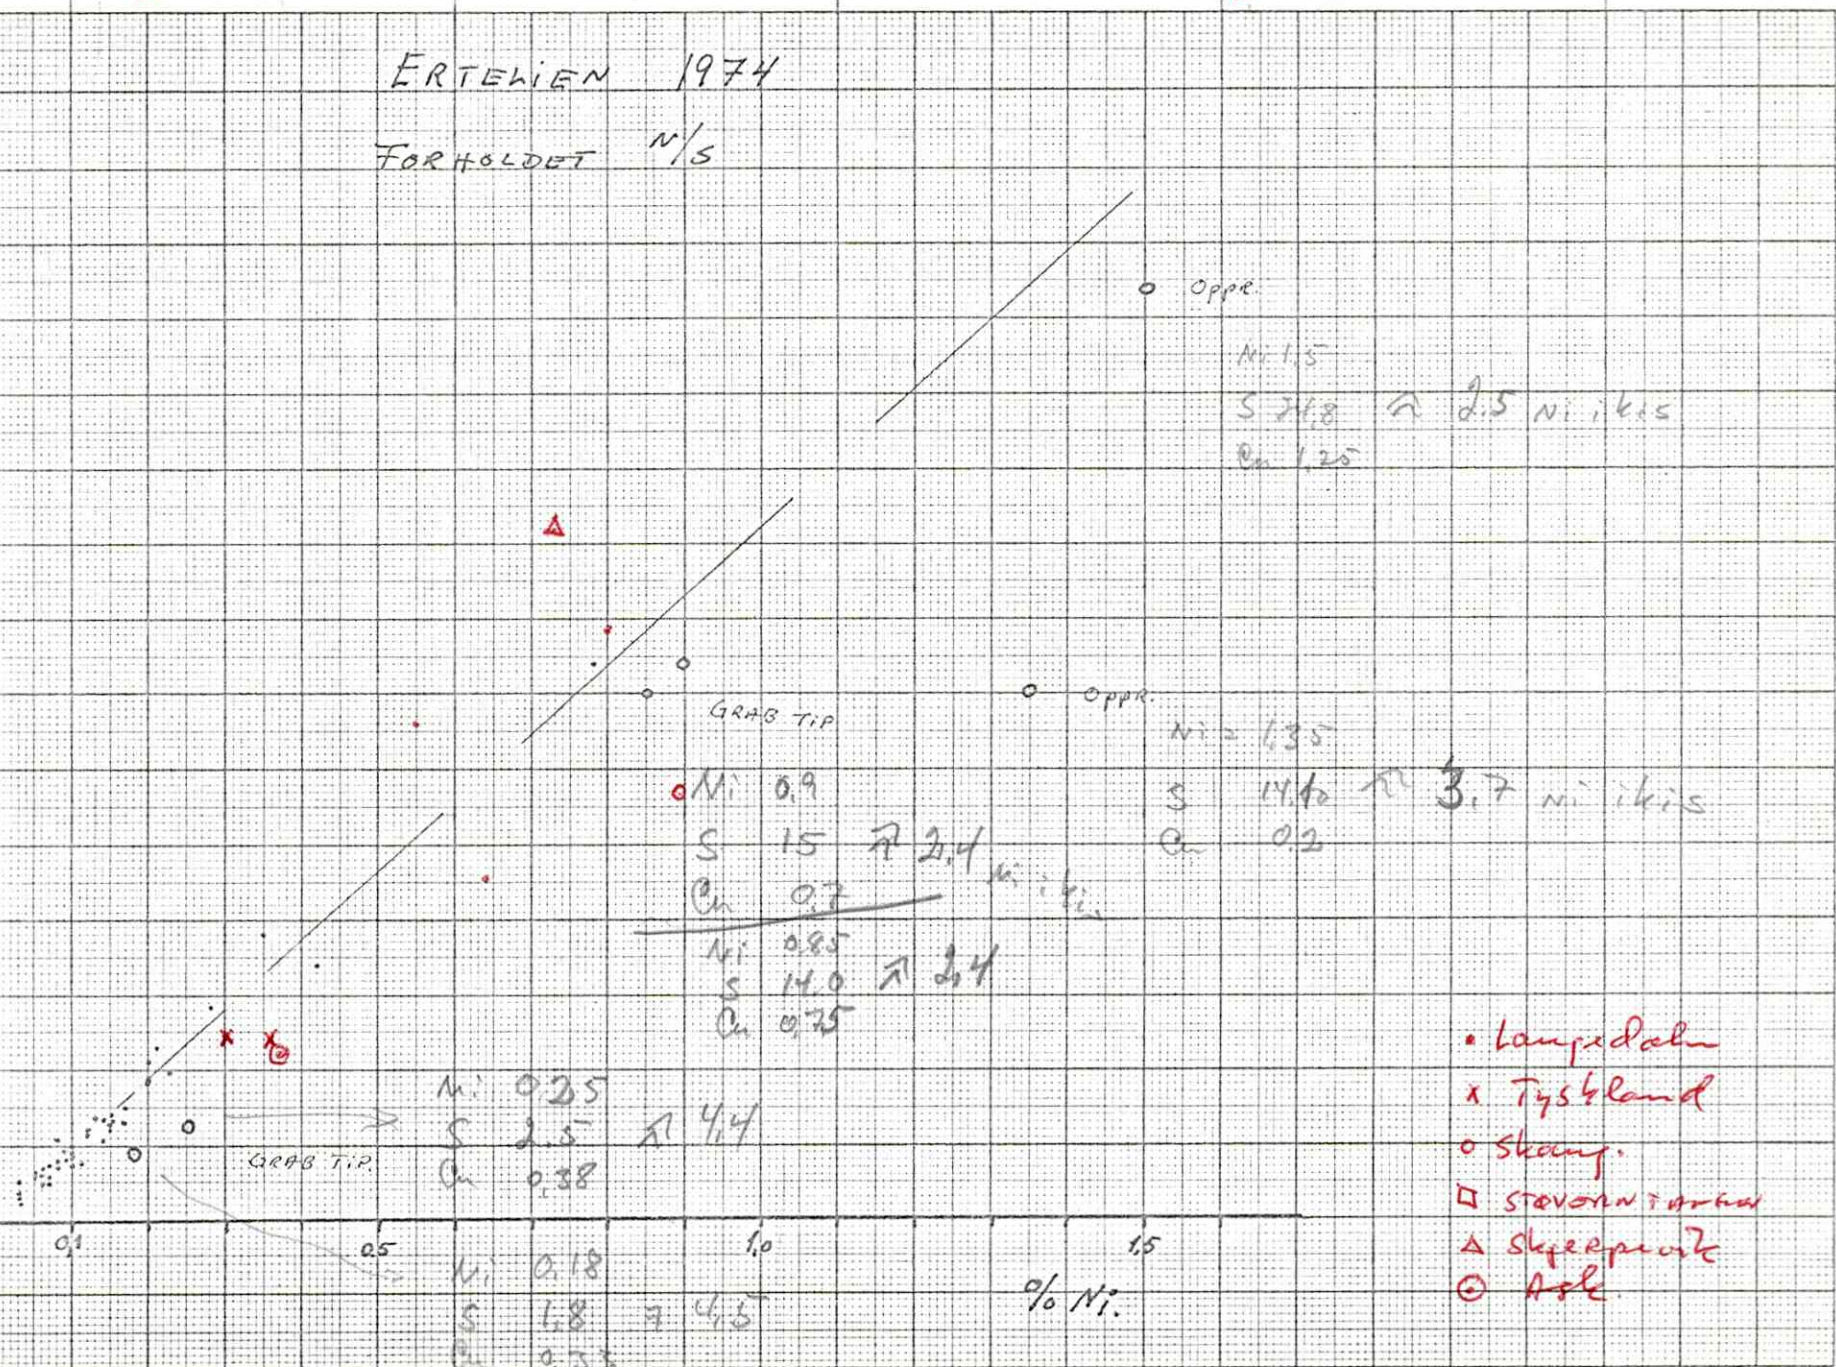 ERTELIEN 1974
FORHOLDET N/S
Oppr.
Ni 1,5
S 24,8 ⩞ 2.5 Ni i kis
Cu 1,25
GRAB TIP
Oppr.
Ni = 1,35
S ⩞ 3.7 Ni i kis
Cu 0.2
Ni 0,9
S 15 ⩞ 2,4 Ni i kis
Cu 0,7
Ni 0.85
S 14.0 ⩞ 2,4
Cu 0,75
Ni 0.25
S 2.5 ⩞ 4,4
Cu 0,38
GRAB TIP
0,1 0.5 1,0 1,5
% Ni.
Ni 0,18
S 1,8 4,5
Cu 0.33
• Langedalen
x Tyskland
o Skaug.
□ STAVERNTANGEN
△ Skjerpevik
⊙ Ask